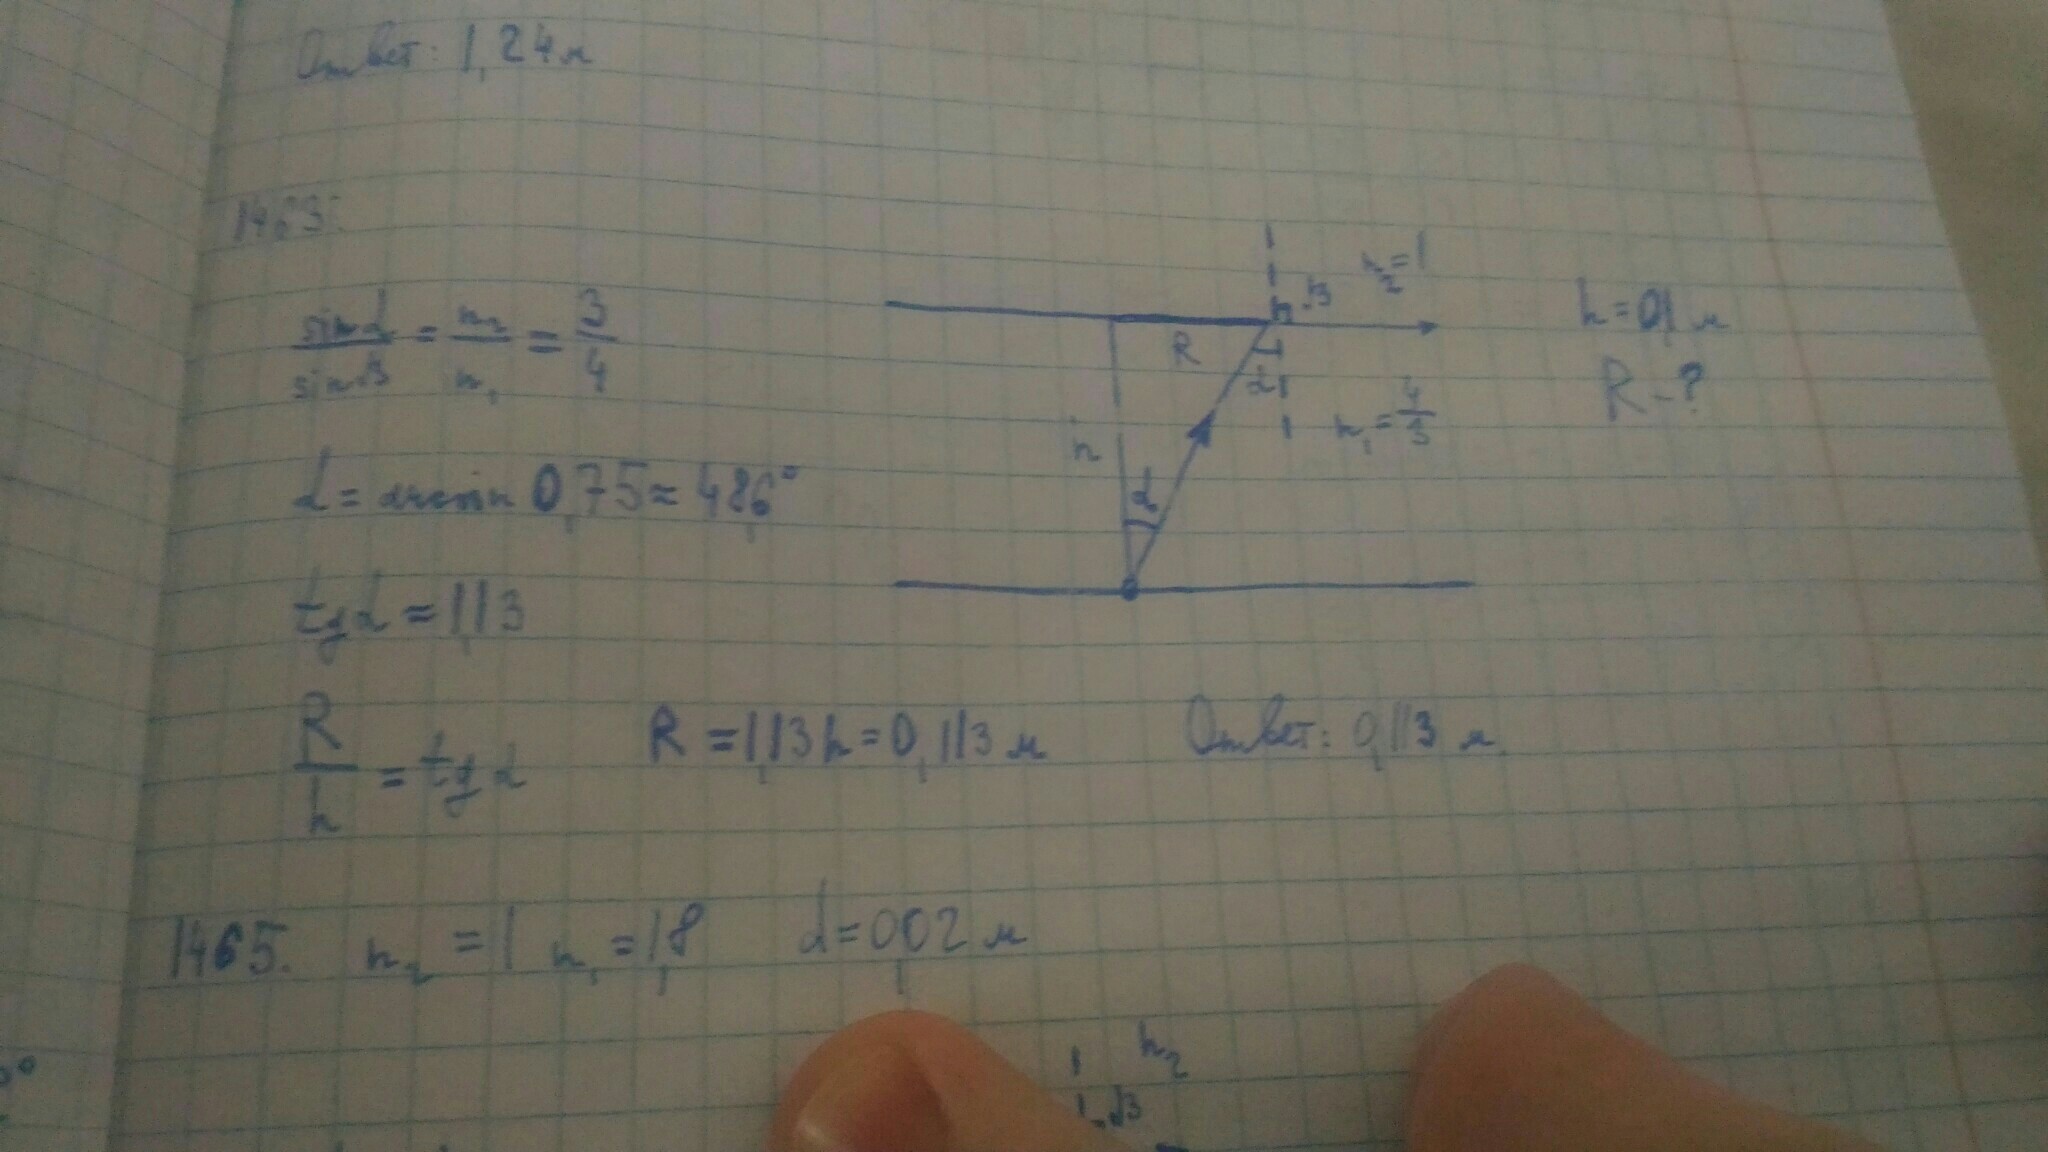 Ответ: 1,24 м
1463.
sin α / sin β = n₂ / n₁ = 3 / 4
α = arcsin 0,75 ≈ 48,6°
tg α ≈ 1,13
R / h = tg α
R = 1,13 h = 0,113 м
Ответ: 0,113 м.
β n₂ = 1
R
α
n₁ = 4 / 3
h
α
h = 0,1 м
R - ?
1465. n₂ = 1 n₁ = 1,8 d = 0,02 м
n₂
β